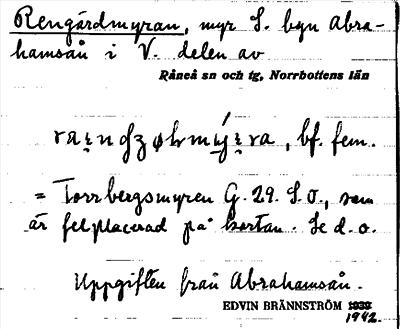 Rengårdmyran, myr S. byn Abra-
hamsån i V. delen av
Råneå sn och tg, Norrbottens län
, bf. fem.
= Torrbergsmyren G. 29. S.O., som
är felplacerad på kartan. Se d.o.
Uppgiften från Abrahamsån.
EDVIN BRÄNNSTRÖM 1939
1942.